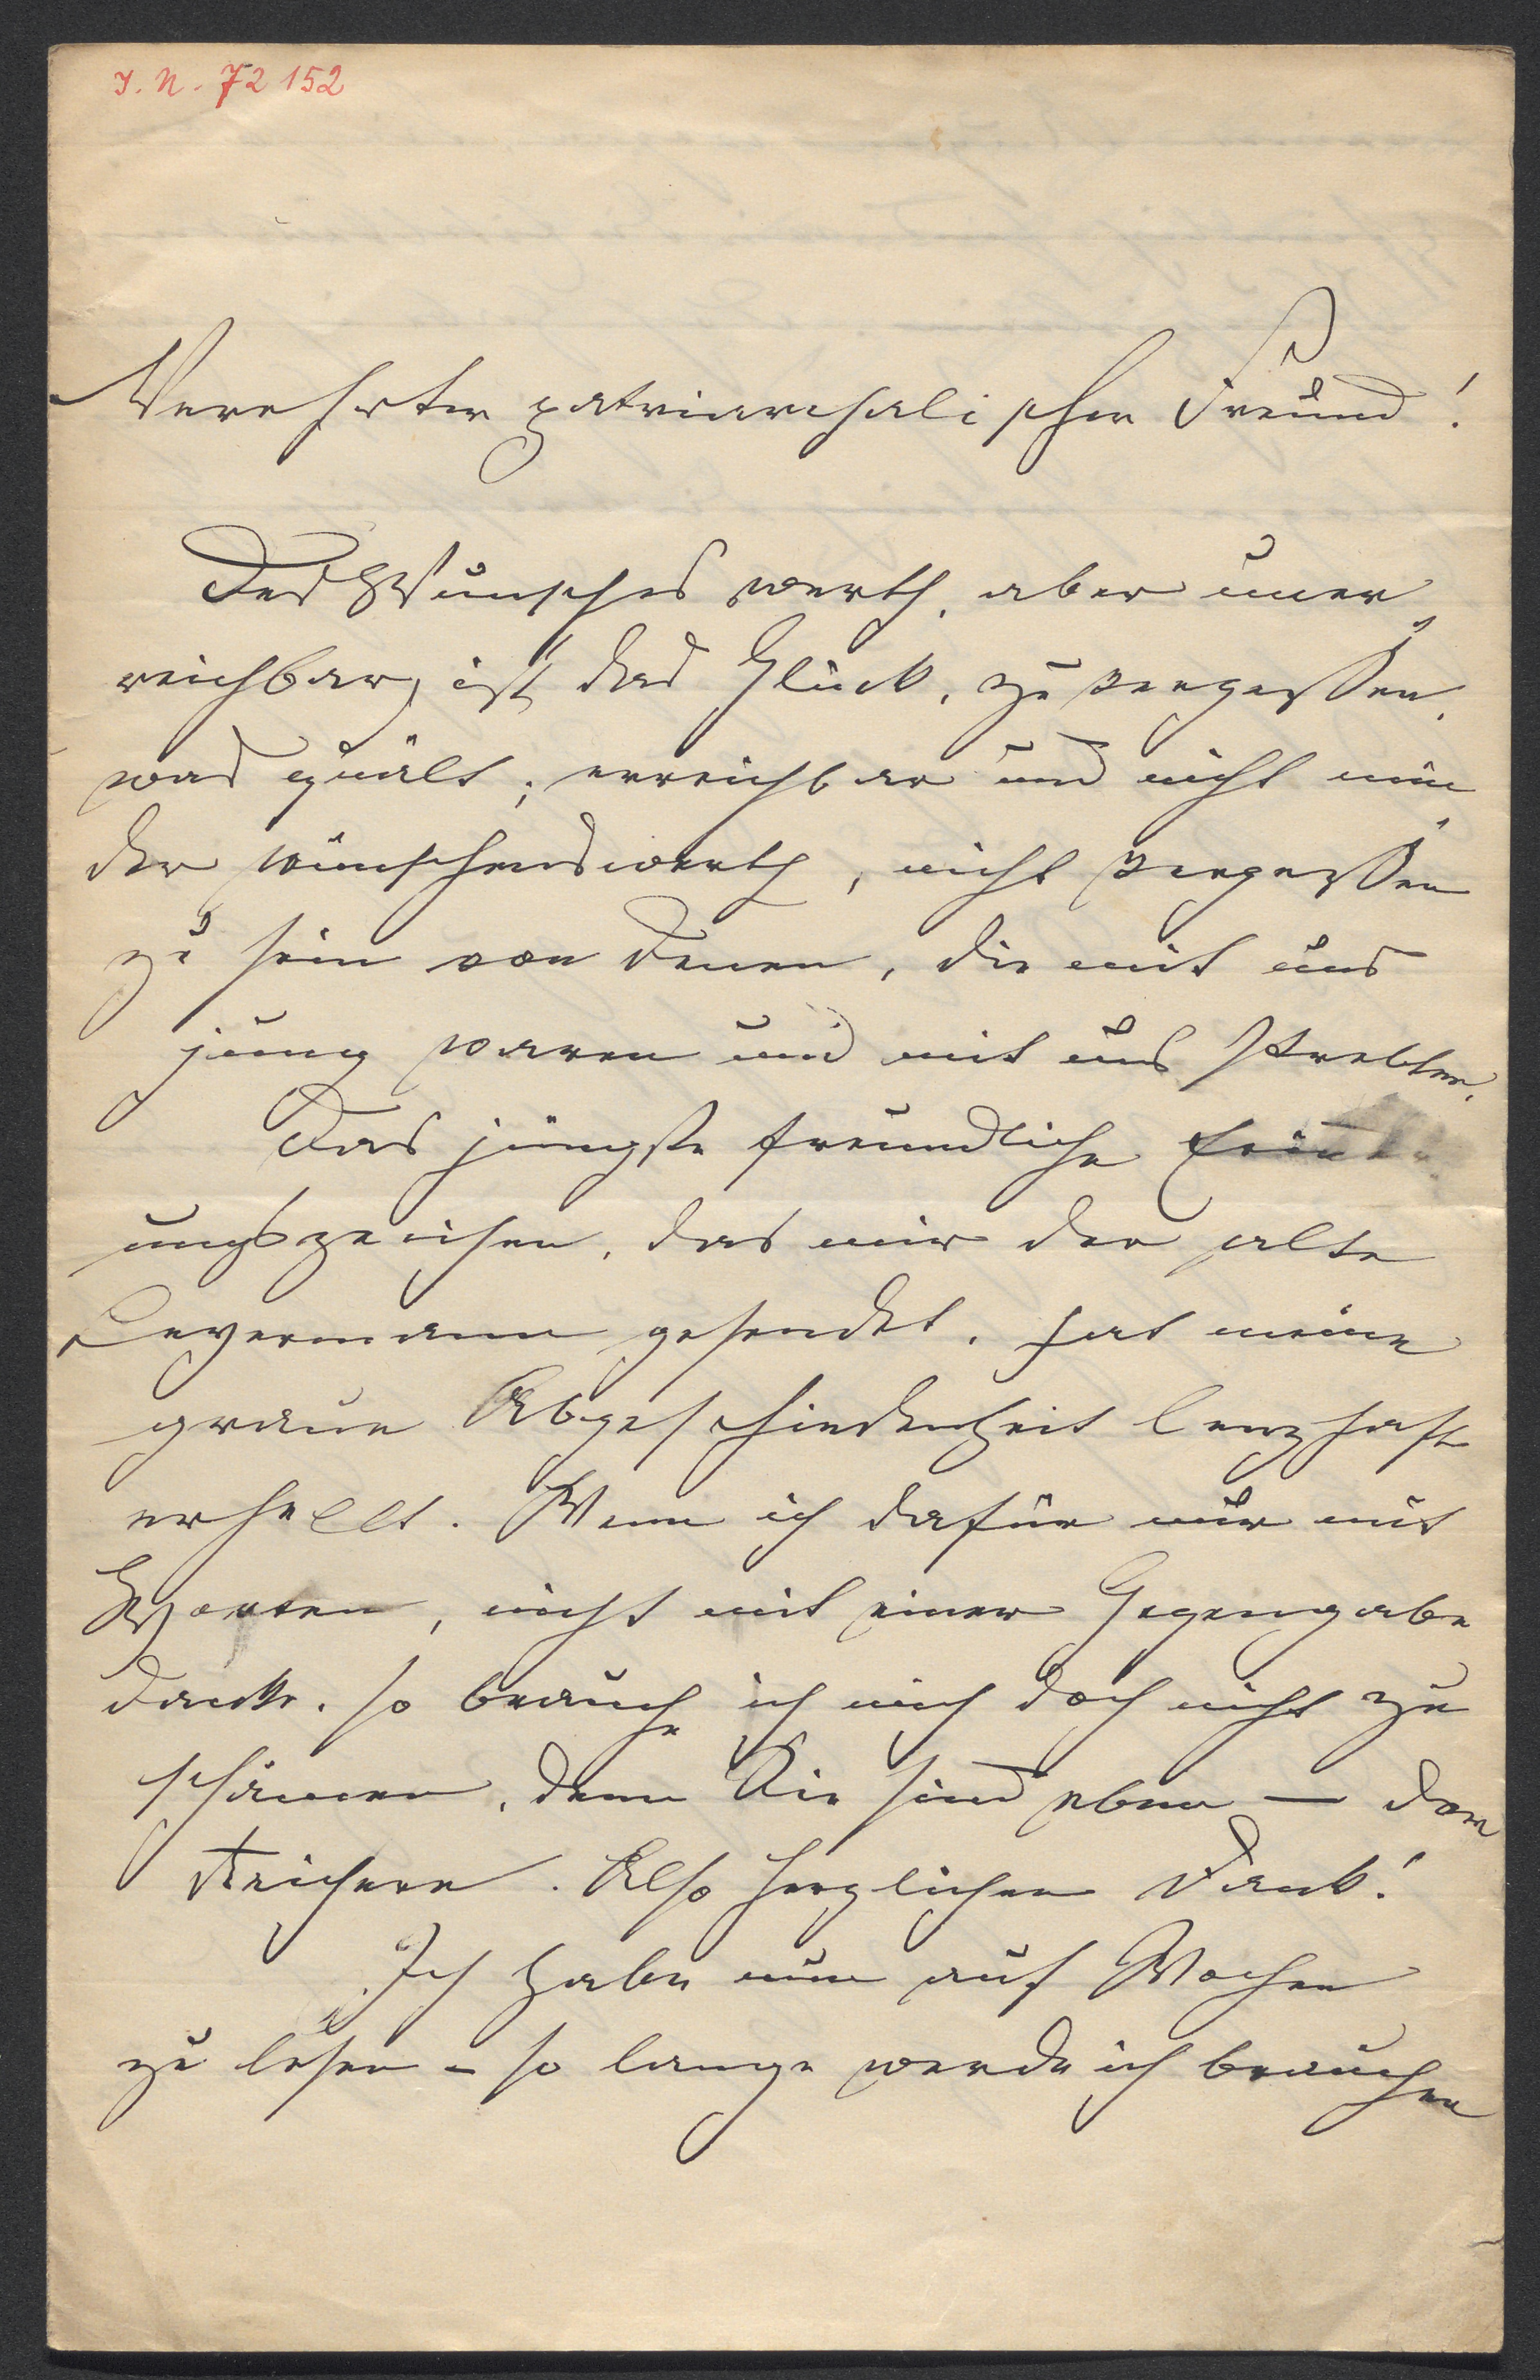 I. N. 72152
Verehrter patriarchalischer Freund!
Des Wunsches werth, aber uner
reichbar, ist das Glück, zu vergessen,
was quält; erreichbar und nicht min
der wünschenswerth, nicht vergessen
zu sein von denen, die mit uns
jung waren und mit uns strebten.
Das jüngste freundliche
ungszeichen, das mir der alte
Leyermann gesendet, hat meine
graue Abgeschiedenheit lenzhaft
erhellt. Wenn ich dafür nur mit
Worten, nicht mit einer Gegengabe
danke, so brauche ich mich doch nicht zu
schämen, denn Sie sind eben — der
Reichere. Also herzlichen Dank!
Ich habe nun auf Wochen
zu lesen – so lange werde ich brauchen